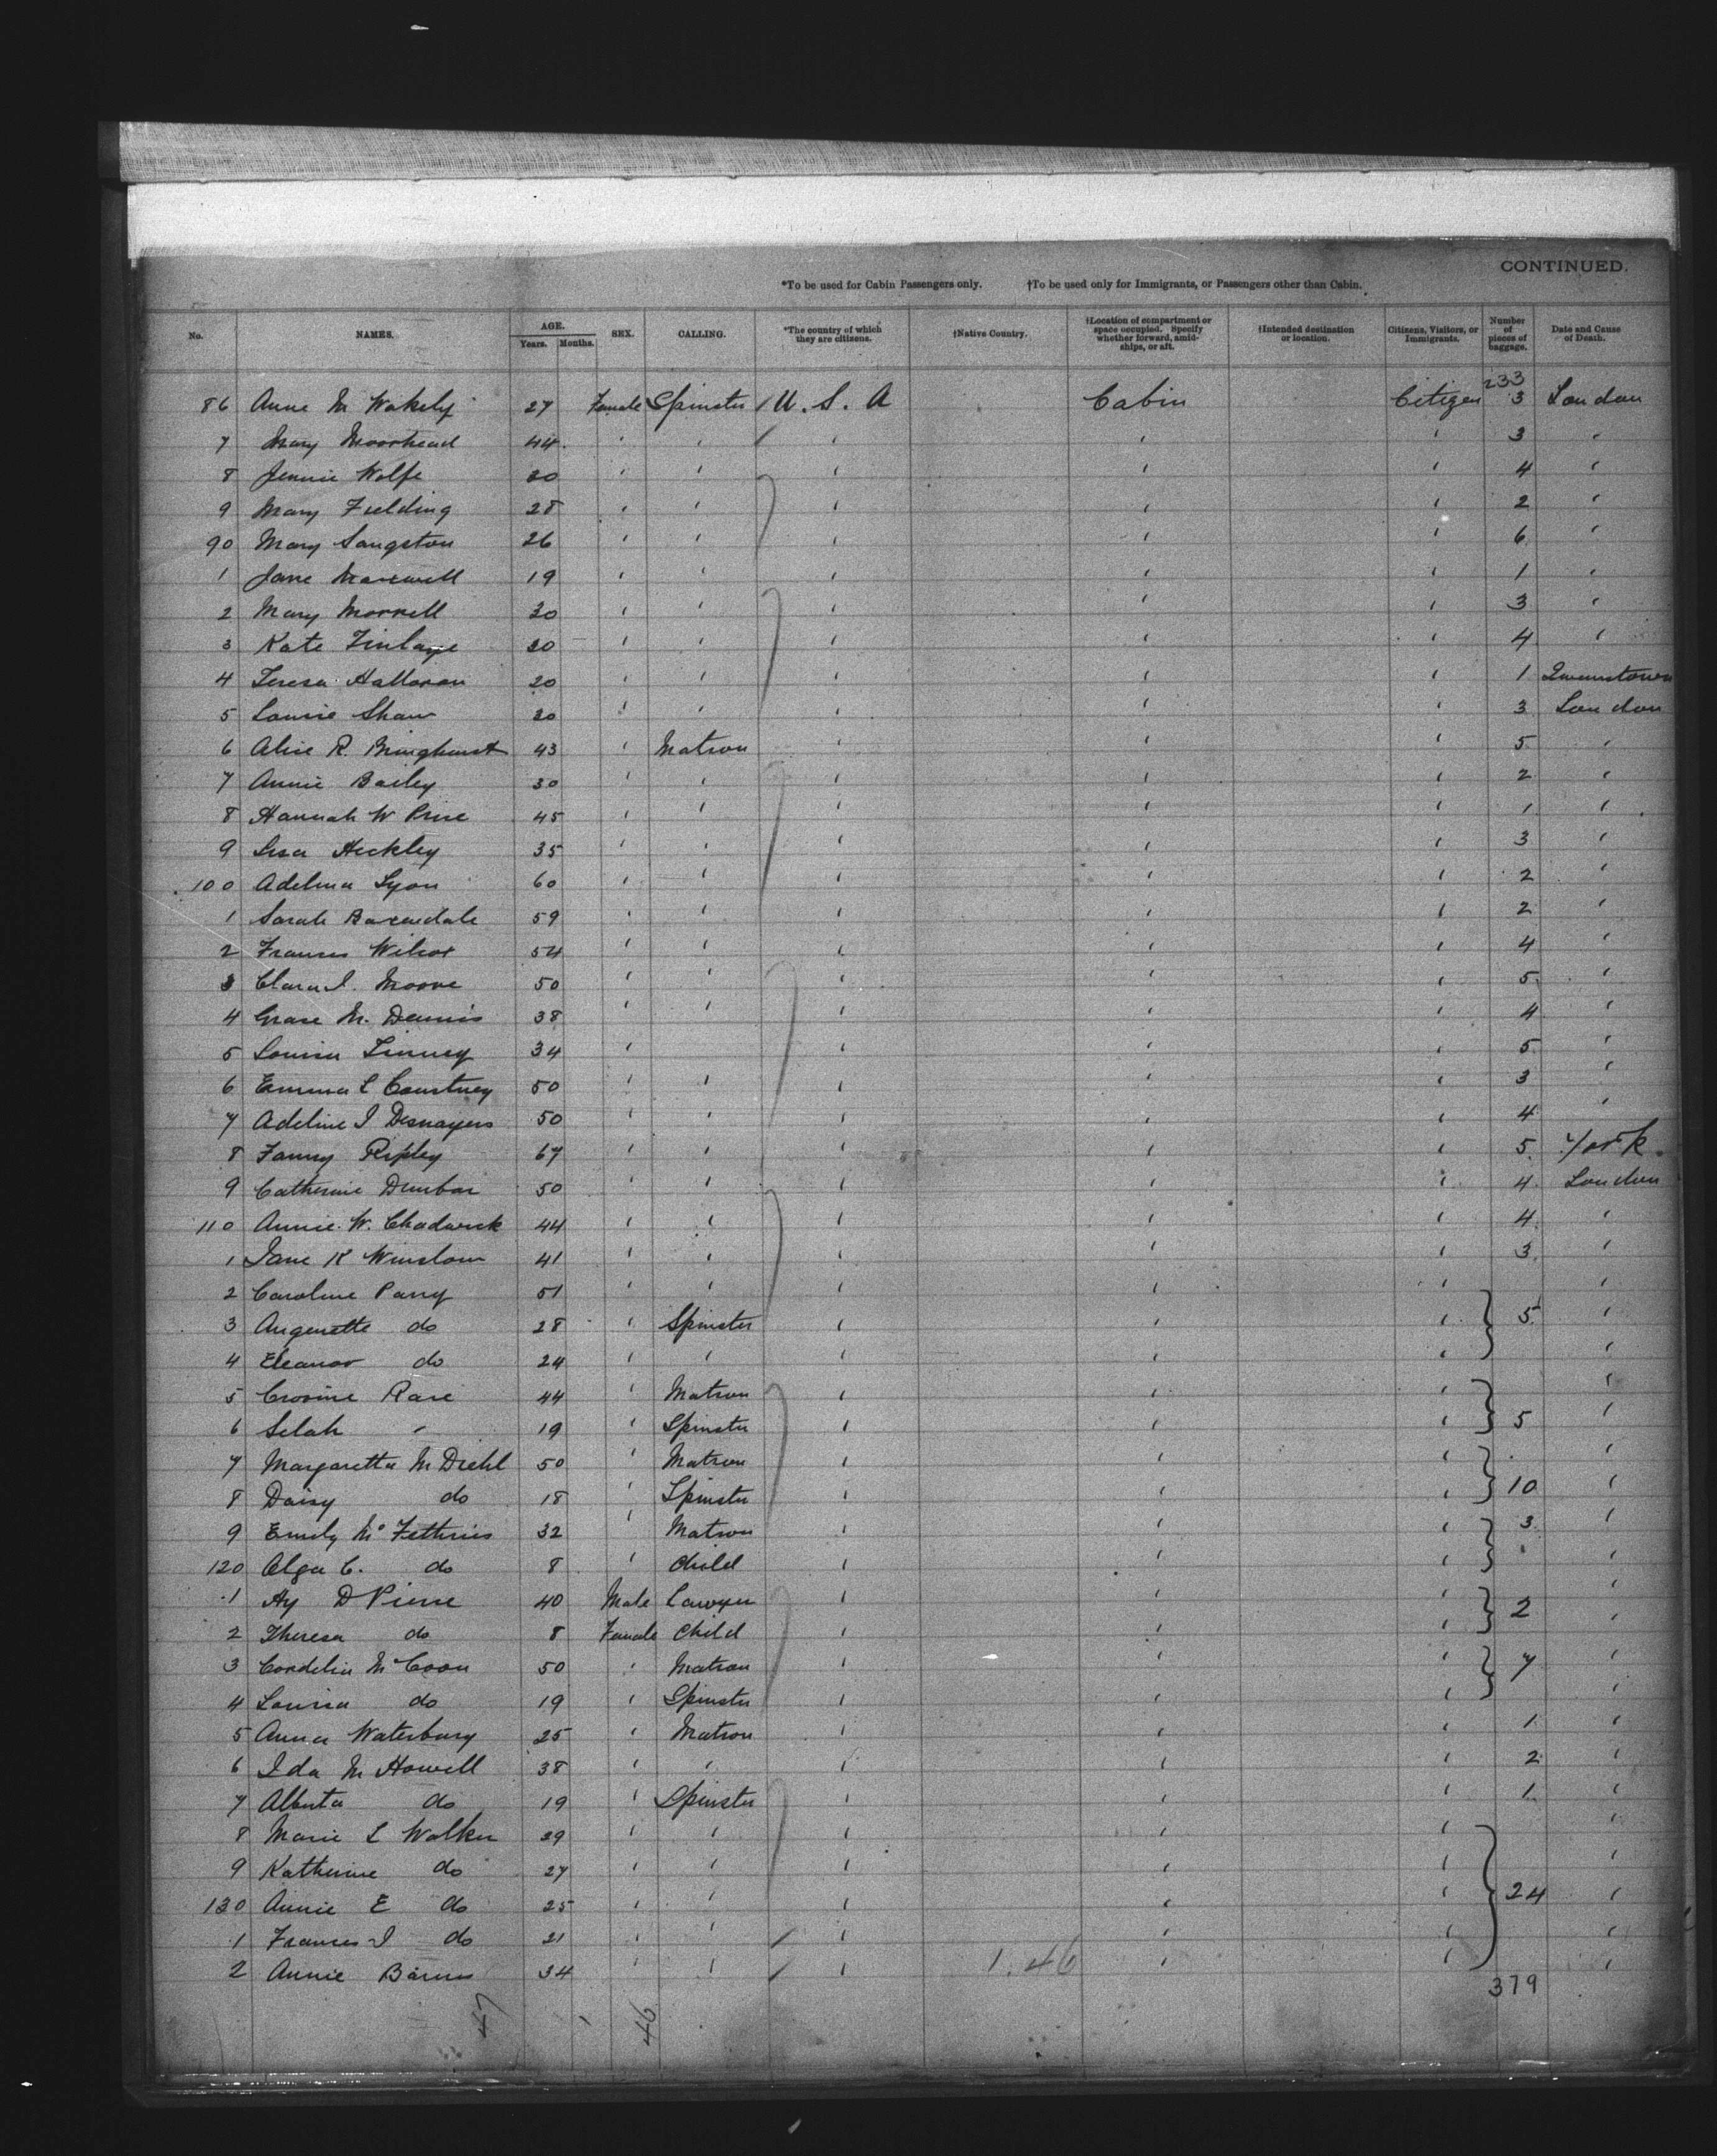 CONTINUED.
*To be used for Cabin Passengers only. †To be used only for Immigrants, or Passengers other than Cabin.
No. NAMES. AGE. Years. Months. SEX. CALLING. *The country of which they are citizens. †Native Country. †Location of compartment or space occupied. Specify whether forward, amidships, or aft. †Intended destination or location. Citizens, Visitors, or Immigrants. Number of pieces of baggage. Date and Cause of Death.
233
86 Anne M Wakely 27 Female Spinster U. S. A Cabin Citizen 3 London
7 Mary Moorhead 44 " " " " " 3 "
8 Jennie Wolfe 30 " " " " " 4 "
9 Mary Fielding 28 " " " " " 2 "
90 Mary Sangston 26 " " " " " 6 "
1 Jane Maxwell 19 " " " " " 1 "
2 Mary Morrell 30 " " " " " 3 "
3 Kate Finlaye 20 " " " " " 4 "
4 Teresa Halloran 20 " " " " " 1 Queenstown
5 Louise Shaw 20 " " " " " 3 London
6 Alice R. Bringhurst 43 " Matron " " " 5 "
7 Annie Bailey 30 " " " " " 2 "
8 Hannah W Price 45 " " " " " 1 "
9 Lisa Heckley 35 " " " " " 3 "
100 Adelina Lyon 60 " " " " " 2 "
1 Sarah Baxendale 59 " " " " " 2 "
2 Frances Wilcox 54 " " " " " 4 "
3 Clara J. Moore 50 " " " " " 5 "
4 Grace M. Dennis 38 " " " " " 4 "
5 Louisa Linney 34 " " " " 5 "
6 Emma L Courtney 50 " " " " " 3 "
7 Adeline I 50 " " " " " 4 "
8 Fanny Ripley 67 " " " " " 5 York
9 Catherine Dunbar 50 " " " " " 4 London
110 Annie W. Chadwick 44 " " " " " 4 "
1 Jane K Winslow 41 " " " " " 3 "
2 Caroline Parry 51 " " " " " "
3 Angenette do 28 " Spinster " " " 5 "
4 Eleanor do 24 " " " " " "
5 Rare 44 " Matron " " " "
6 Selah " 19 " Spinster " " " 5 "
7 Margaretta M Diehl 50 " Matron " " " "
8 Daisy do 18 " Spinster " " " 10 "
9 Emily McFethries 32 " Matron " " " 3 "
120 Olga C. do 8 " Child " " " "
1 Hy D Pierce 40 Male Lawyer " " " 2 "
2 Theresa do 8 Female Child " " " "
3 Cordelia McCoon 50 " Matron " " " 7 "
4 Louisa do 19 " Spinster " " " "
5 Anna Waterbury 25 " Matron " " " 1 "
6 Ida M Howell 38 " " " " " 2 "
7 Alberta do 19 " Spinster " " " 1 "
8 Marie L Walker 29 " " " " " "
9 Katherine do 27 " " " " " "
130 Annie E do 25 " " " " " 24 "
1 Frances I do 21 " " " " " "
2 Annie Barns 34 " " " " " "
1.46
379
47 46